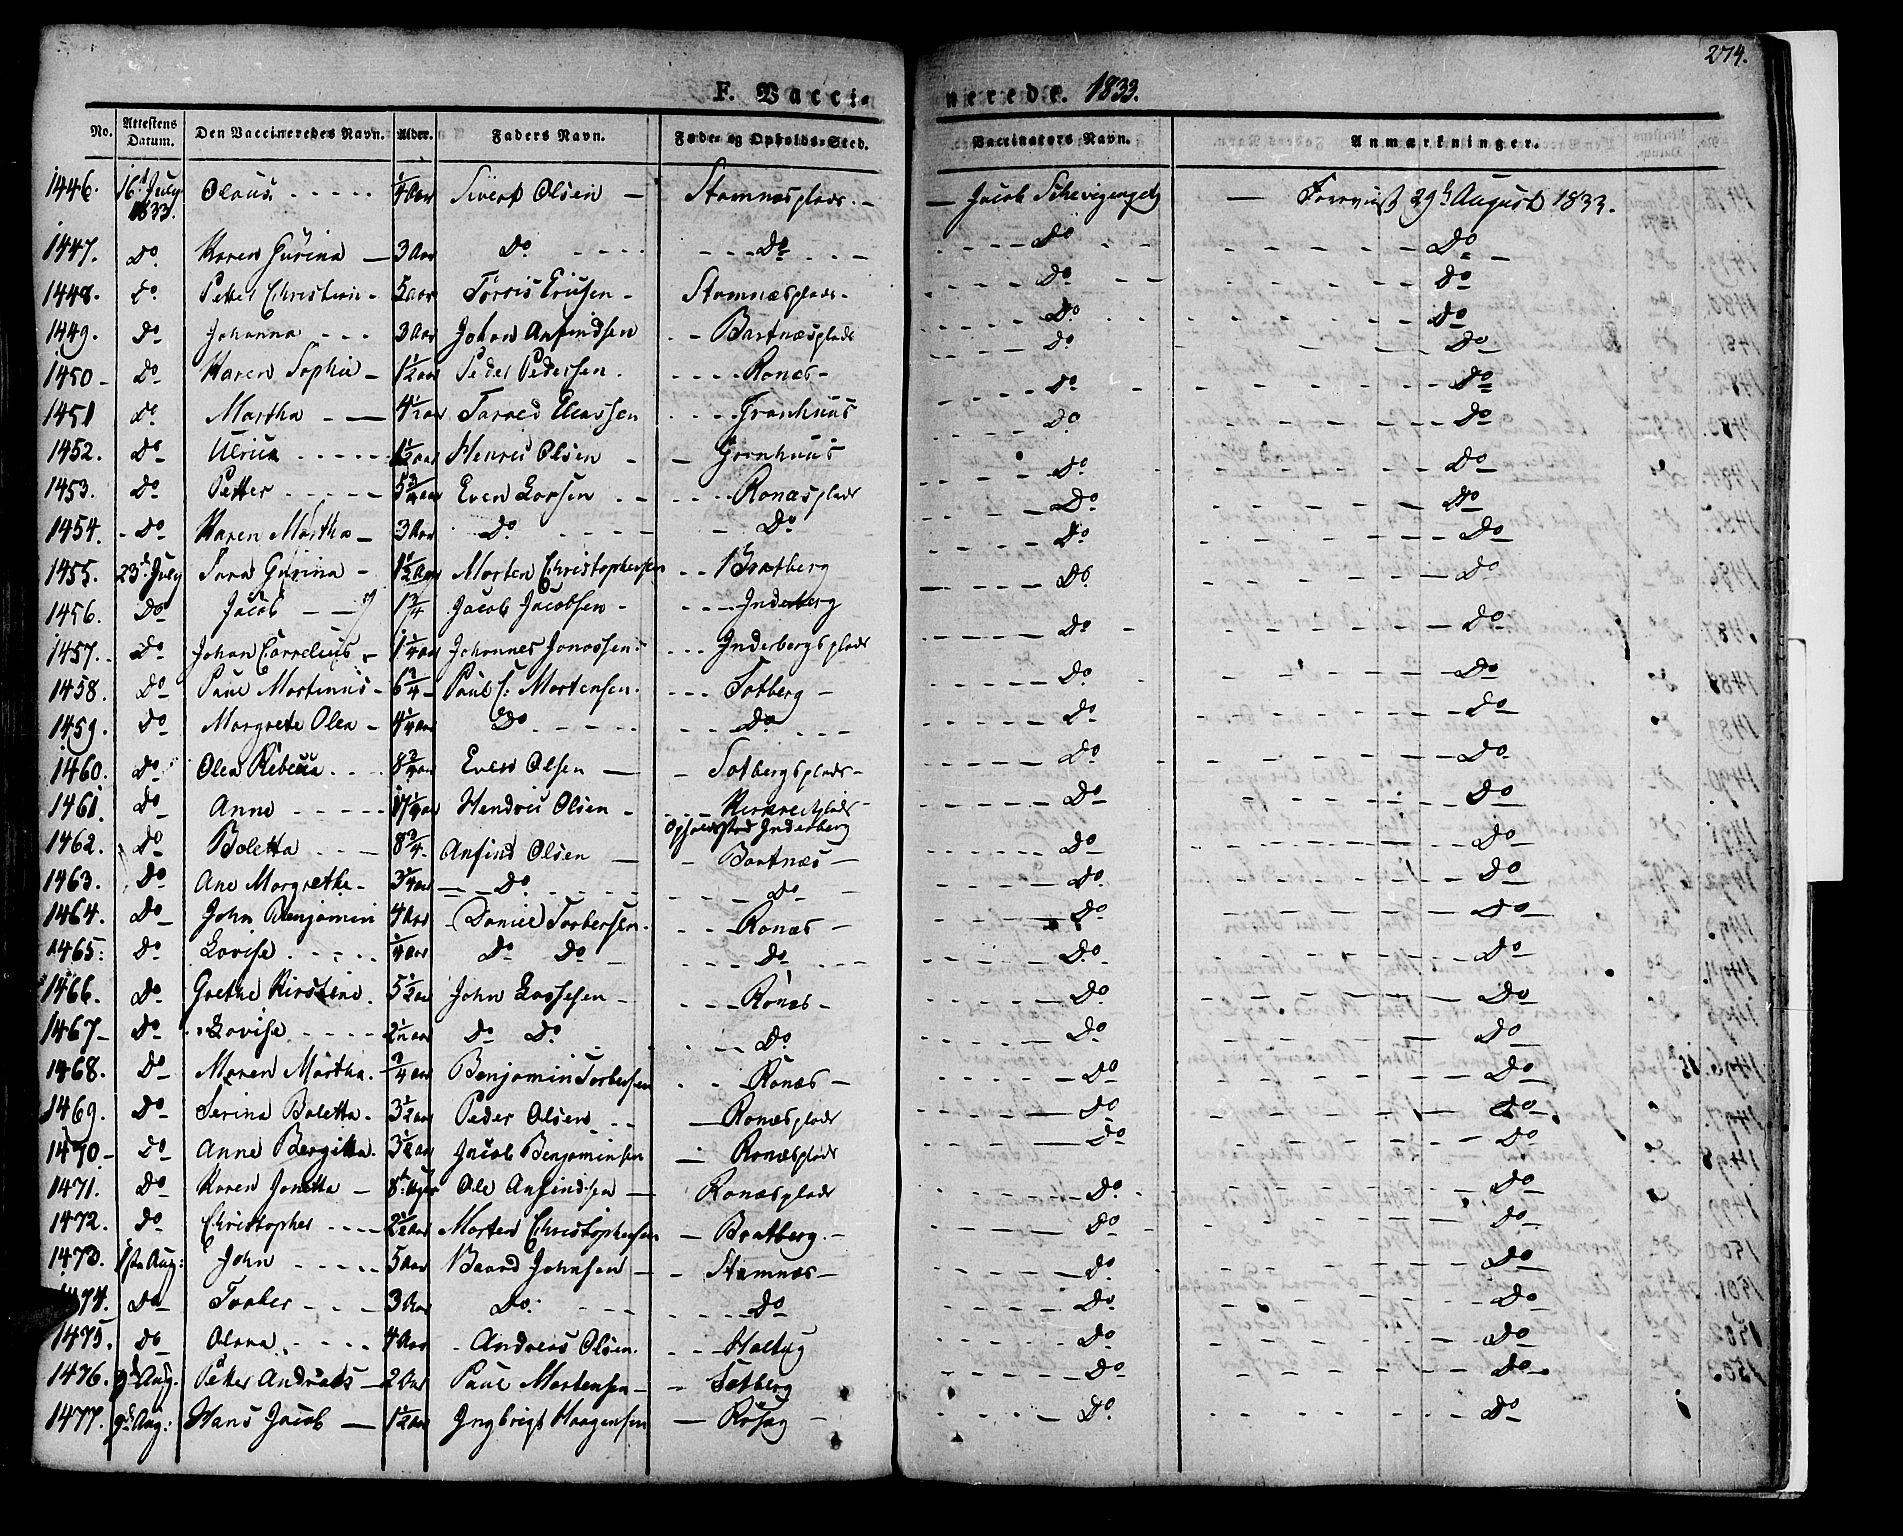 274.
F. Vaccinerede. 1833.
No. Attestens Datum. Den Vaccineredes Navn. Alder. Faders Navn. Føde- og Opholds-Sted. Vaccinators Navn. Anmærkninger.
1446. 16d July 1833. Olaus 1/4 Aar Sivert Olsen Stamnæsplads Jacob Forevist 29d August 1833.
1447. Do. Karen Gurina 3 Aar Do. Do Do Do
1448. Do. Petter Christian 5 aar Torris Stamnæsplads Do Do
1449. Do Johanna 3 Aar Johan Anfindsen Bartnæsplads Do Do
1450 Do Karen Sophia 1 1/2 aar Peder Pedersen. Ronæs Do Do
1451 Do Martha 4 1/2 aar Do Do
1452. Do Ulrica 1 1/2 aar Olsen Do Do
1453. Do Petter 5 3/4 aar Even Larsen Ronæsplads Do Do
1454. Do Karen Martha 3 Aar Do Do Do Do
1455. 23d July Sara Gurina 1 1/2 Aar Morten Christophersen Bratberg Do Do
1456. Do Jacob 1 3/4 Jacob Jacobsen Inderberg Do Do
1457. Do Johan Cornelius 1 1/4 aar Johannes Jonassen Inderbergsplads Do Do
1458. Do Paul Martinus 6 3/4 Paul Mortensen. Totberg Do Do
1459. Do Margrete Olea 4 1/4 aar Do Do Do Do
1460. Do Olea Rebecca 8 3/4 aar Even Olsen Totbergsplads Do Do
1461. Do Anne Olsen Do Do
Opholdsstad Inderberg
1462. Do Boletta 8 3/4 Anfind Olsen Bartnæs Do Do
1463. Do Ane Margrethe 3 1/4 aar Do. Do Do Do
1464. Do John Benjamin 4 Aar Daniel Torbersen. Ronæs Do Do
1465. Do Lovise 1/4 aar Do Do Do Do Do
1466. Do Grethe Kirstene. 5 1/2 aar John Ronæs Do Do
1467 Do Lovise 2 1/2 aar Do Do. Do Do Do
1468. Do Maren Martha. 3/4 aar Benjamin Torbersen Ronæs Do Do
1469. Do Serina Boletta. 3 1/2 aar Peder Olsen Ronæsplads Do Do
1470. Do Anne Bergitta. 3 1/2 aar Jacob Benjaminsen Ronæsplads Do Do
1471. Do Karen Jonetta 8 Ole Anfindsen Ronæsplads Do Do
1472. Do Christopher 2 1/2 aar Morten Christophersen Bratberg. Do Do
1473. 1ste Aug: John 5 aar Baard Johnsen Stamnæs Do Do
1474. Do Torber 3 Aar Do. Do Do Do
1475. Do Olava 4 Aar Andreas Olsen. Haltug Do Do
1476. 9d Aug. Petter Andreas 2 Aar Paul Mortensen Totberg Do Do
1477. 9d Aug: Hans Jacob 1 1/2 aar Ingbrigt Haagensen Røsæg Do. Do